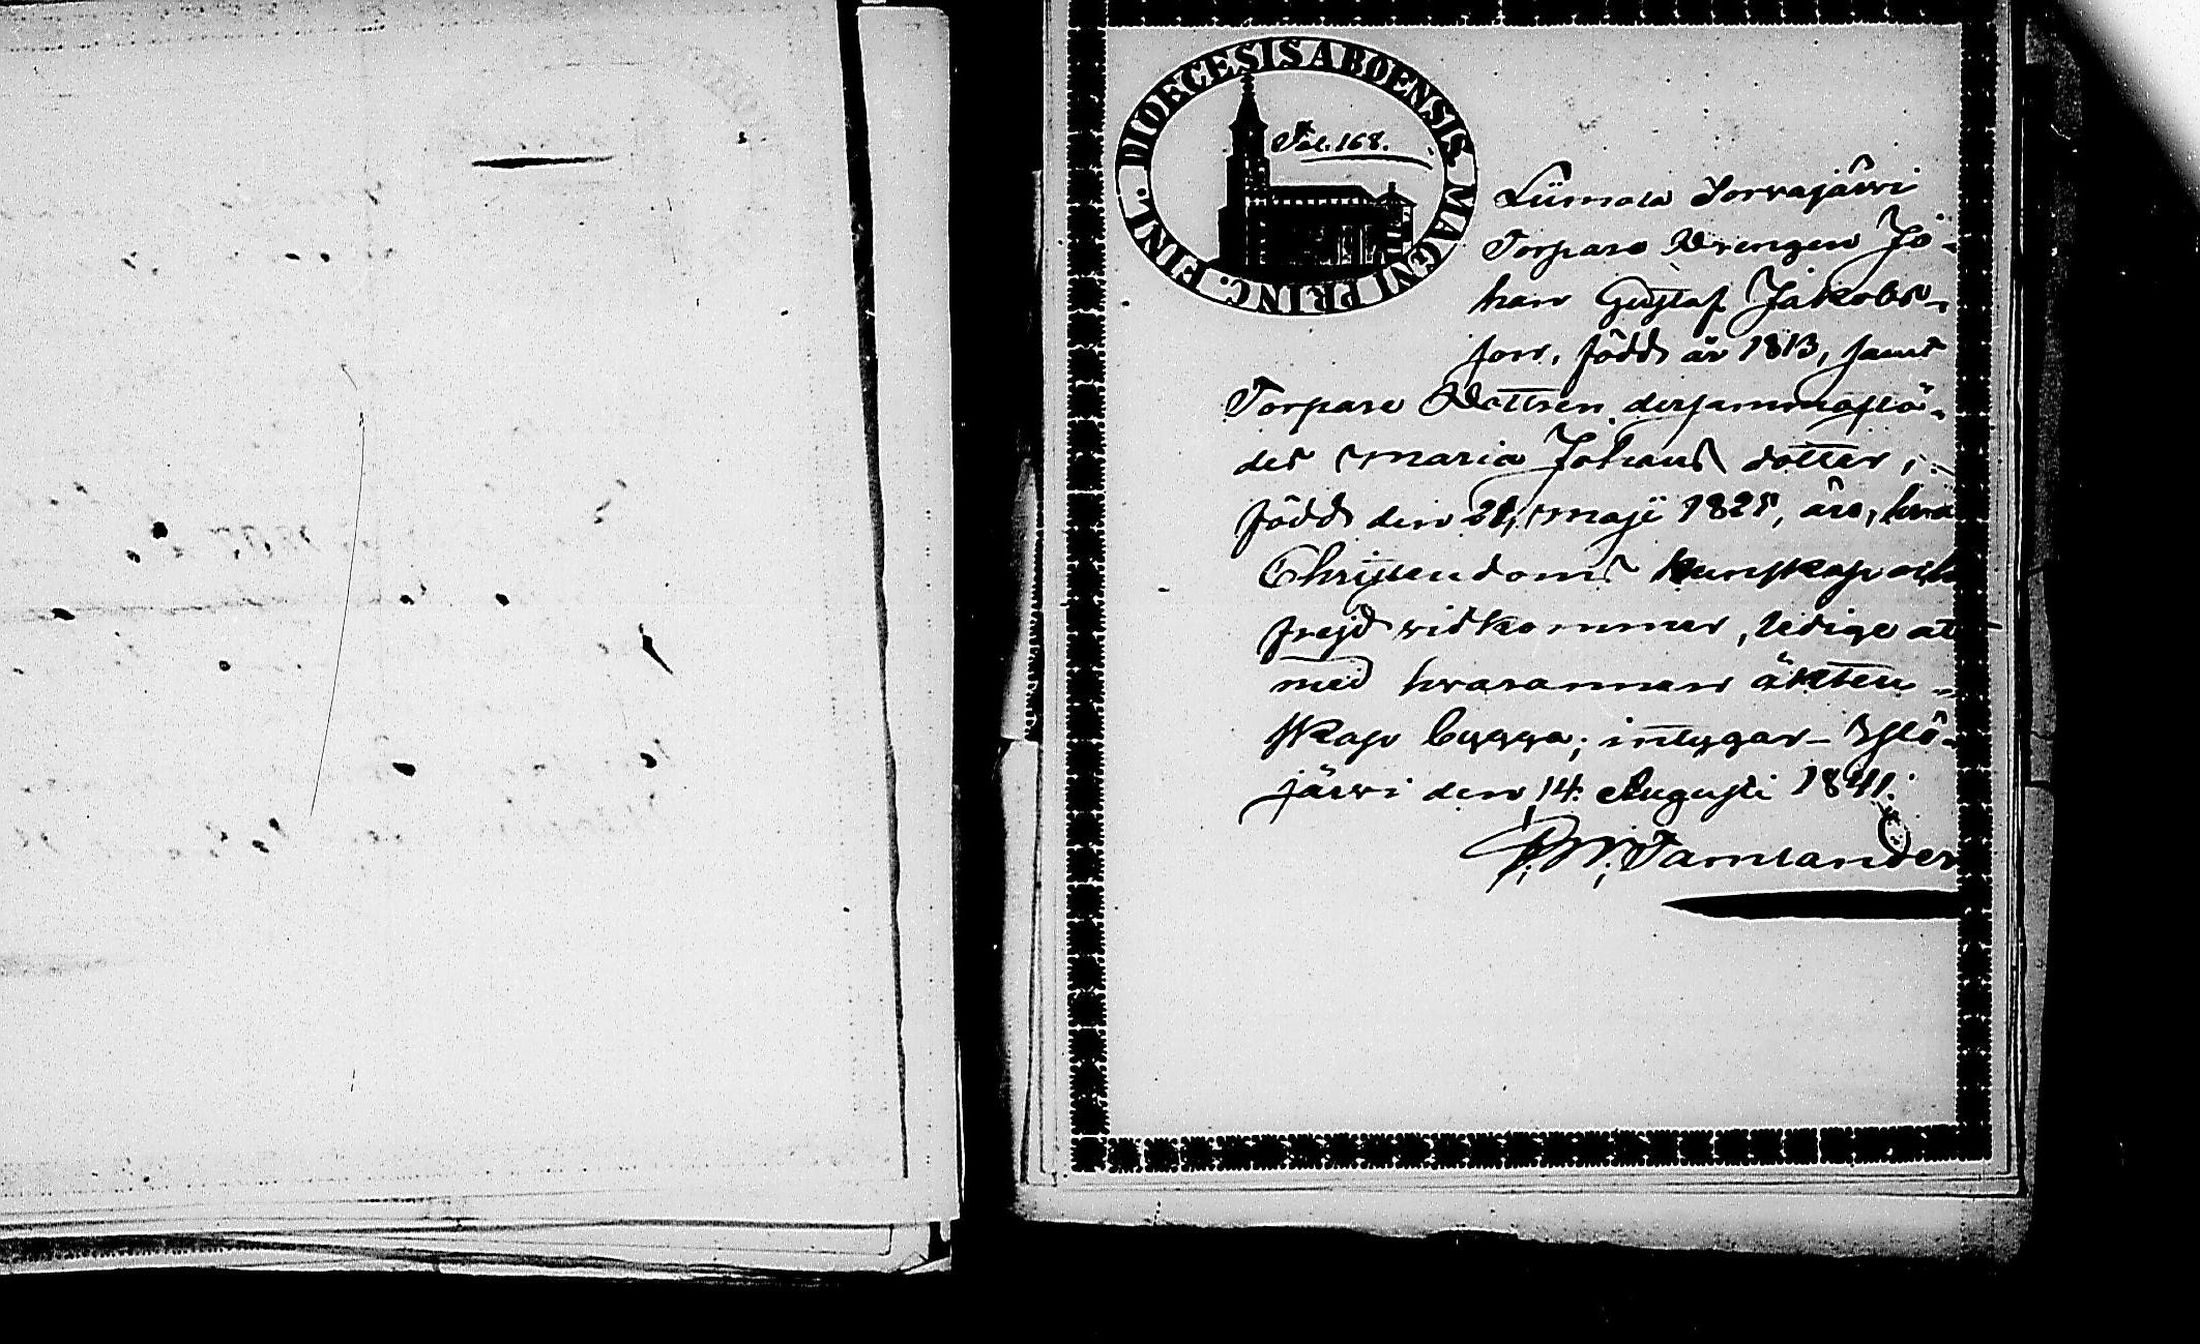 DIOECESIS ABOENSIS. MAGNI PRINC. FINL.
Fol. 168.
Liimola Sorvajärvi
Torpare Drengen Jo-
han Gustaf Jakobs-
son, född år 1813, samt
Torpare Dottren dersammastä-
des Maria Johans dotter,
född den 21 Maji 1821, äro, hvad
Christendoms kunskap och
frejd vidkommer, ledige at
med hvarannan äkten-
skap bygga; intygar - Ylö-
järvi den 14. Augusti 1841.
Tamlander